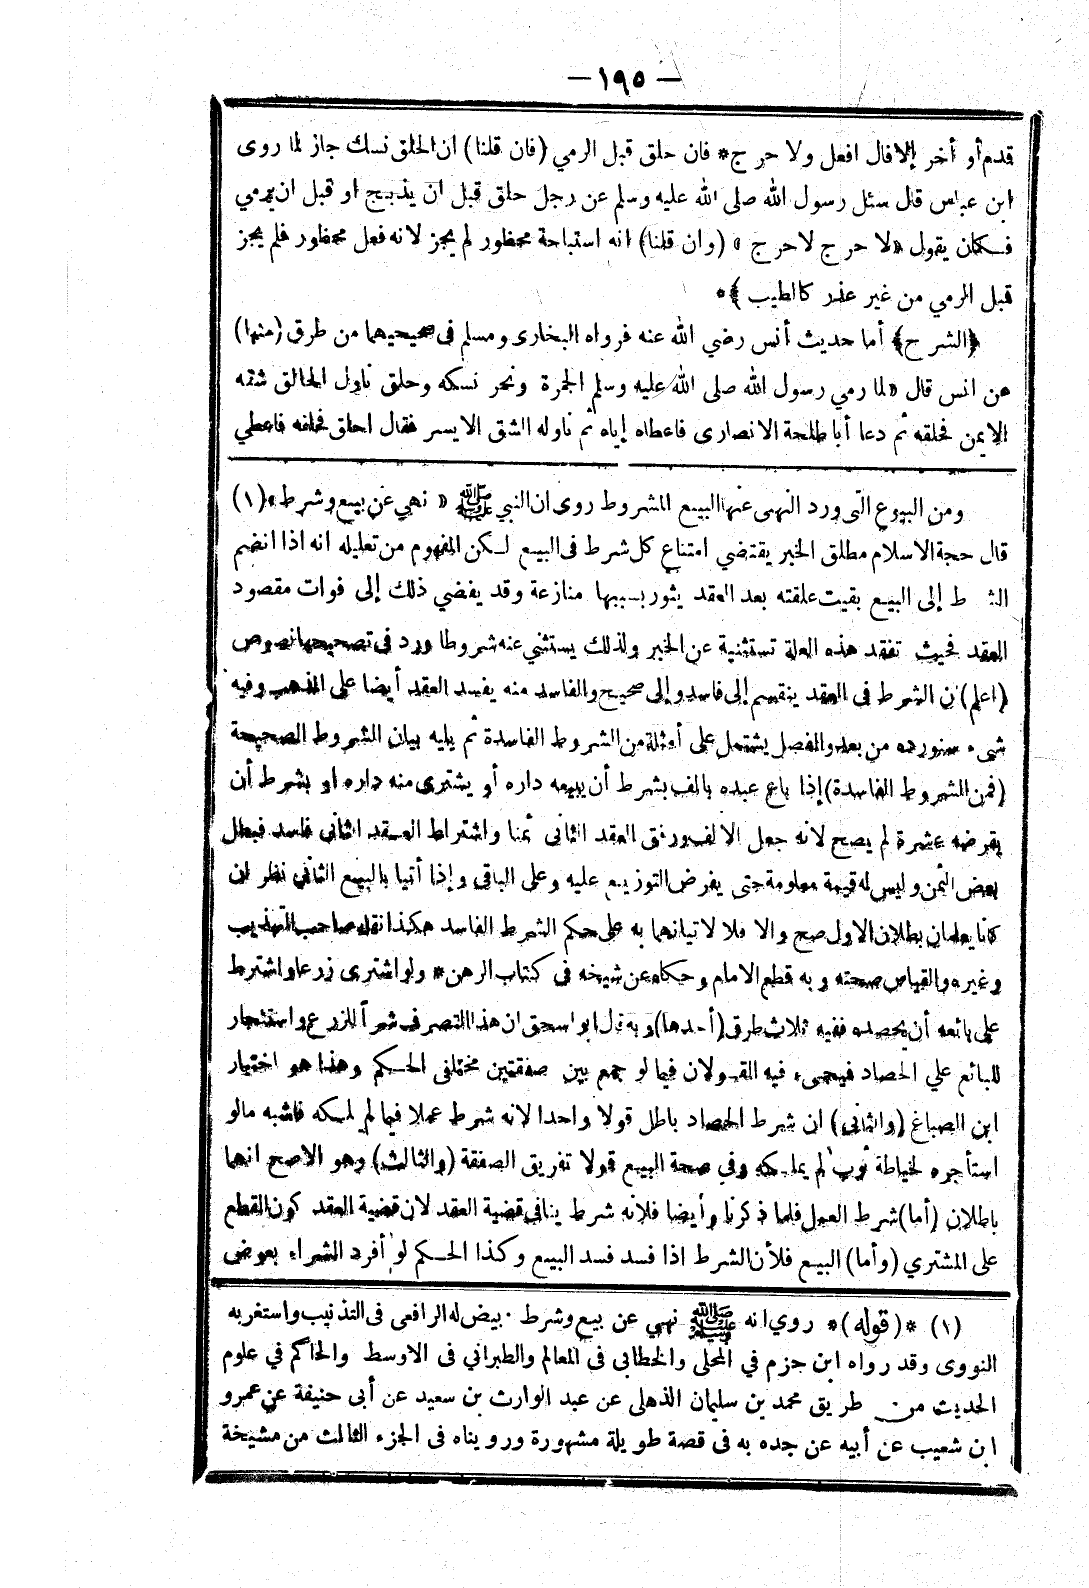 — ١٩٥ —
قدم أو أخر إلا قال افعل ولا حرج* فان حلق قبل الرمي (فان قلنا) ان الحلق نسك جاز لما روى
ابن عباس قال سئل رسول الله صلى الله عليه وسلم عن رجل حلق قبل ان يذبح او قبل ان يرمي
فكان يقول «لا حرج لا حرج» (وان قلنا) انه استباحة محظور لم يجز لانه فعل محظور فلم يجز
قبل الرمي من غير عذر كالطيب﴾*
﴿الشرح﴾ أما حديث أنس رضي الله عنه فرواه البخارى ومسلم فى صحيحيهما من طرق (منها)
عن انس قال «لما رمي رسول الله صلى الله عليه وسلم الجمرة ونحر نسكه وحلق ناول الحالق شقه
الايمن فحلقه ثم دعا أبا طلحة الانصارى فاعطاه إياه ثم ناوله الشق الايسر فقال احلق فحلقه فاعطي
ومن البيوع التى ورد النهى عنها البيع المشروط روى ان النبي ﷺ «نهي عن بيع وشرط»(١)
قال حجة الاسلام مطلق الخبر يقتضي امتناع كل شرط فى البيع لكن المفهوم من تعليله انه اذا انضم
الشـ ط إلى البيع بقيت علقته بعد العقد يثور بسببها منازعة وقد يفضي ذلك إلى فوات مقصود
العقد فحيث تفقد هذه العلة تستثنية عن الخبر ولذلك يستثني عنه شروطا ورد فى تصحيحها نصوص
(اعلم) ن الشرط فى العقد ينقسم إلى فاسد وإلى صحيح والفاسد منه يفسد العقد أيضا على المذهب وفيه
شىء سنورده من بعد والفصل يشتمل على أمثلة من الشروط الفاسدة ثم يليه بيان الشروط الصحيحة
(فمن الشروط الفاسدة) إذا باع عبده بالف بشرط أن يبيعه داره أو يشترى منه داره او بشرط أن
يقرضه عشرة لم يصح لانه جعل الالف ورفق العقد الثانى ثمنا واشتراط العقد الثانى فاسد فبطل
بعض الثمن وليس له قيمة معلومة حتى يفرض التوزيع عليه وعلى الباقي وإذا أتيا بالبيع الثاني نظر ان
كانا يعلمان بطلان الاول صح والا فلا لاتيانهما به على حكم الشرط الفاسد هكذا نقله صاحب التهذيب
وغيره والقياس صحته وبه قطع الامام وحكاه عن شيخه فى كتاب الرهن* ولو اشترى زرعا واشترط
على بائعه أن يحصده ففيه ثلاث طرق (أحدها) وبه قال ابو اسحق ان هذا التصرف شراً للزرع واستئجار
للبائع علي الحصاد فيجىء فيه القولان فيما لو جمع بين صفقتين مختلفى الحكم وهذا هو اختيار
ابن الصباغ (والثانى) ان شرط الحصاد باطل قولا واحدا لانه شرط عملا فيما لم يملكه فاشبه مالو
استأجره لخياطة ثوب لم يملكه وفي صحة البيع قولا تفريق الصفقة (والثالث) وهو الاصح انهما
باطلان (أما) شرط العمل فلما ذكرنا وأيضا فلانه شرط ينافي قضية العقد لان قضية العقد كون القطع
على المشتري (وأما) البيع فلأن الشرط اذا فسد فسد البيع وكذا الحكم لو أفرد الشراء بعوض
(١) *(قوله)* روي انه ﷺ نهي عن بيع وشرط بيض له الرافعى فى التذنيب واستغربه
النووى وقد رواه ابن حزم في المحلى والخطابى فى المعالم والطبراني فى الاوسط والحاكم في علوم
الحديث من طريق محمد بن سليمان الذهلى عن عبد الوارث بن سعيد عن أبى حنيفة عن عمرو
ابن شعيب عن أبيه عن جده به فى قصة طويلة مشهورة ورويناه فى الجزء الثالث من مشيخة